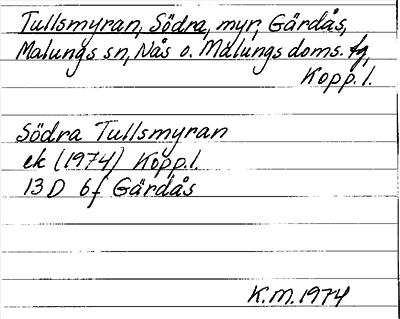 Tullsmyran, Södra, myr, Gärdås,
Malungs sn, Nås o. Malungs doms. fg,
Kopp. l.
Södra Tullsmyran
ek (1974) Kopp. l.
13 D 6f Gärdås
K.M. 1974